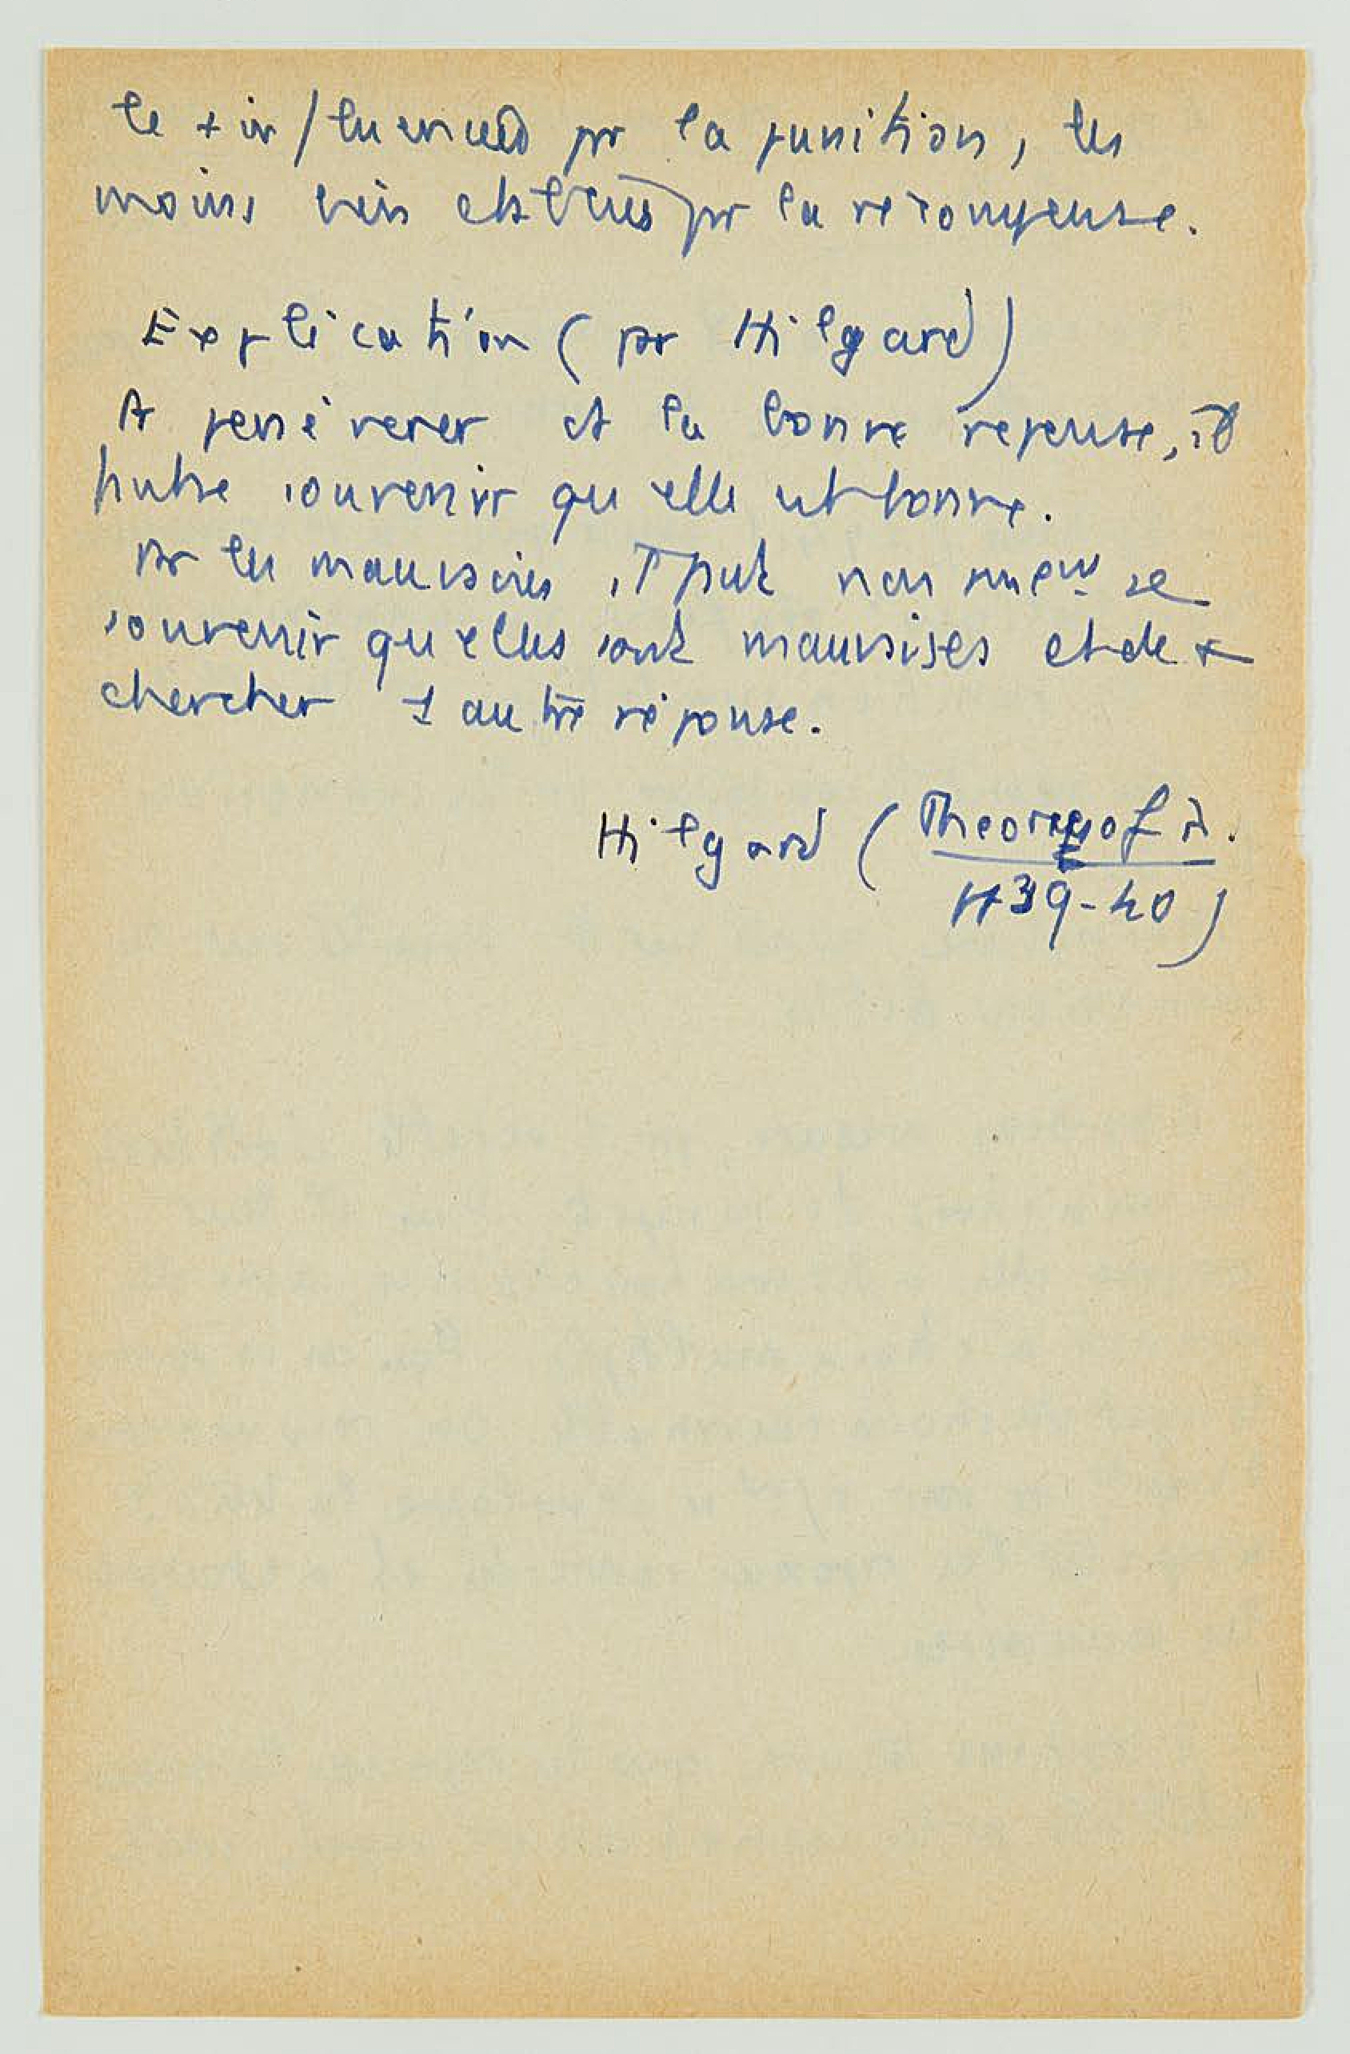 le + influencés pr la punition, les
moins bien obtenus pr la récompense.
Explication (pr Hilgard)
A persévérer et la bonne réponse, il
faut se souvenir qu'elle est bonne.
pr les mauvaises, il faut non seult se
souvenir qu'elles sont mauvaises et de +
chercher 1 autre réponse.
Hilgard (Theories of
39-40)